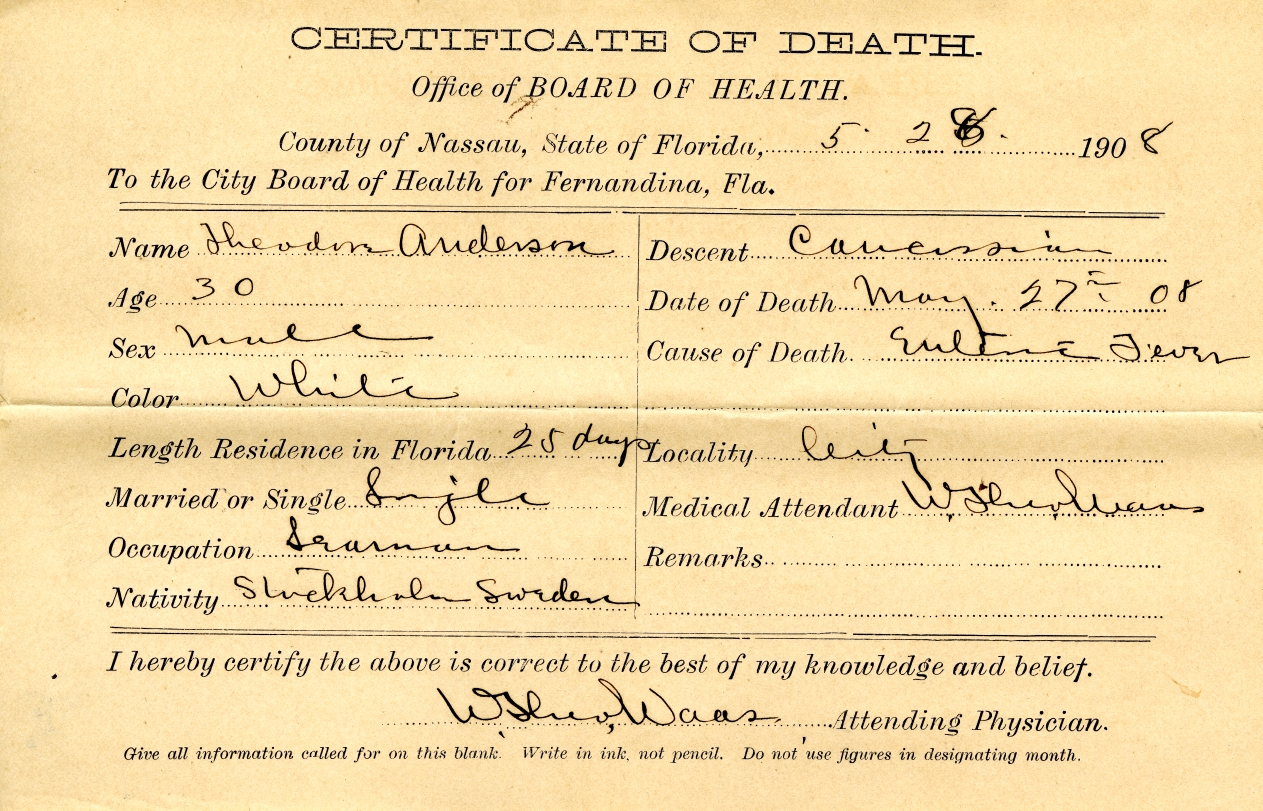 CERTIFICATE OF DEATH.
Office of BOARD OF HEALTH.
County of Nassau, State of Florida, 5. 28. 1908
To the City Board of Health for Fernandina, Fla.
Name Theodore Anderson
Age 30
Sex Male
Color White
Length Residence in Florida 25 days
Married or Single Single
Occupation Seaman
Nativity Stockholm Sweden
Descent Caucassian
Date of Death May. 27th 08
Cause of Death Fever
Locality City
Medical Attendant W. Theo, Waas
Remarks
I hereby certify the above is correct to the best of my knowledge and belief.
W. Theo, Waas Attending Physician.
Give all information called for on this blank. Write in ink, not pencil. Do not use figures in designating month.